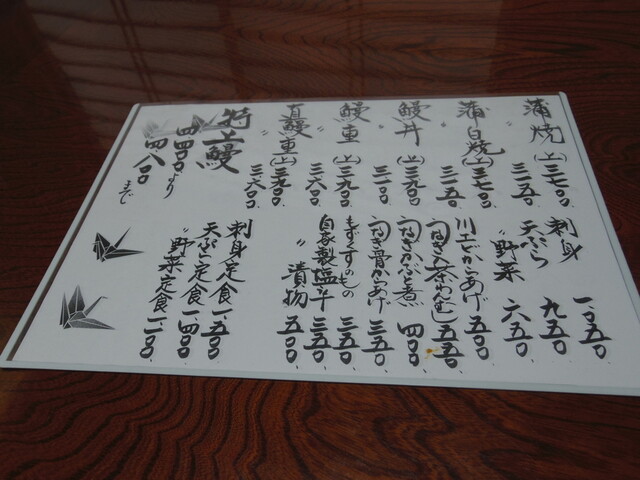 蒲焼(上)三七〇〇
〃 三一五〇
蒲白焼(上)三七〇〇
〃 三一五〇
鰻丼(上)三九〇〇
〃 三一〇〇
鰻重(上)三九〇〇
〃 三六〇〇
直鰻重(上)三九〇〇
〃 三六〇〇
特上鰻
四、四〇〇より
四、八〇〇まで
刺身 一、〇五〇
天ぷら 九五〇
〃野菜 六五〇
川エビからあげ 五〇〇
うなぎ入茶わんむし 五五〇
うなぎかぶと煮 四〇〇
うなぎ骨からあげ 三五〇
もずくすのもの 三五〇
自家製塩辛 三五〇
〃漬物 五〇〇
刺身定食 一、五〇〇
天ぷら定食 一、四〇〇
〃野菜定食 一、一〇〇